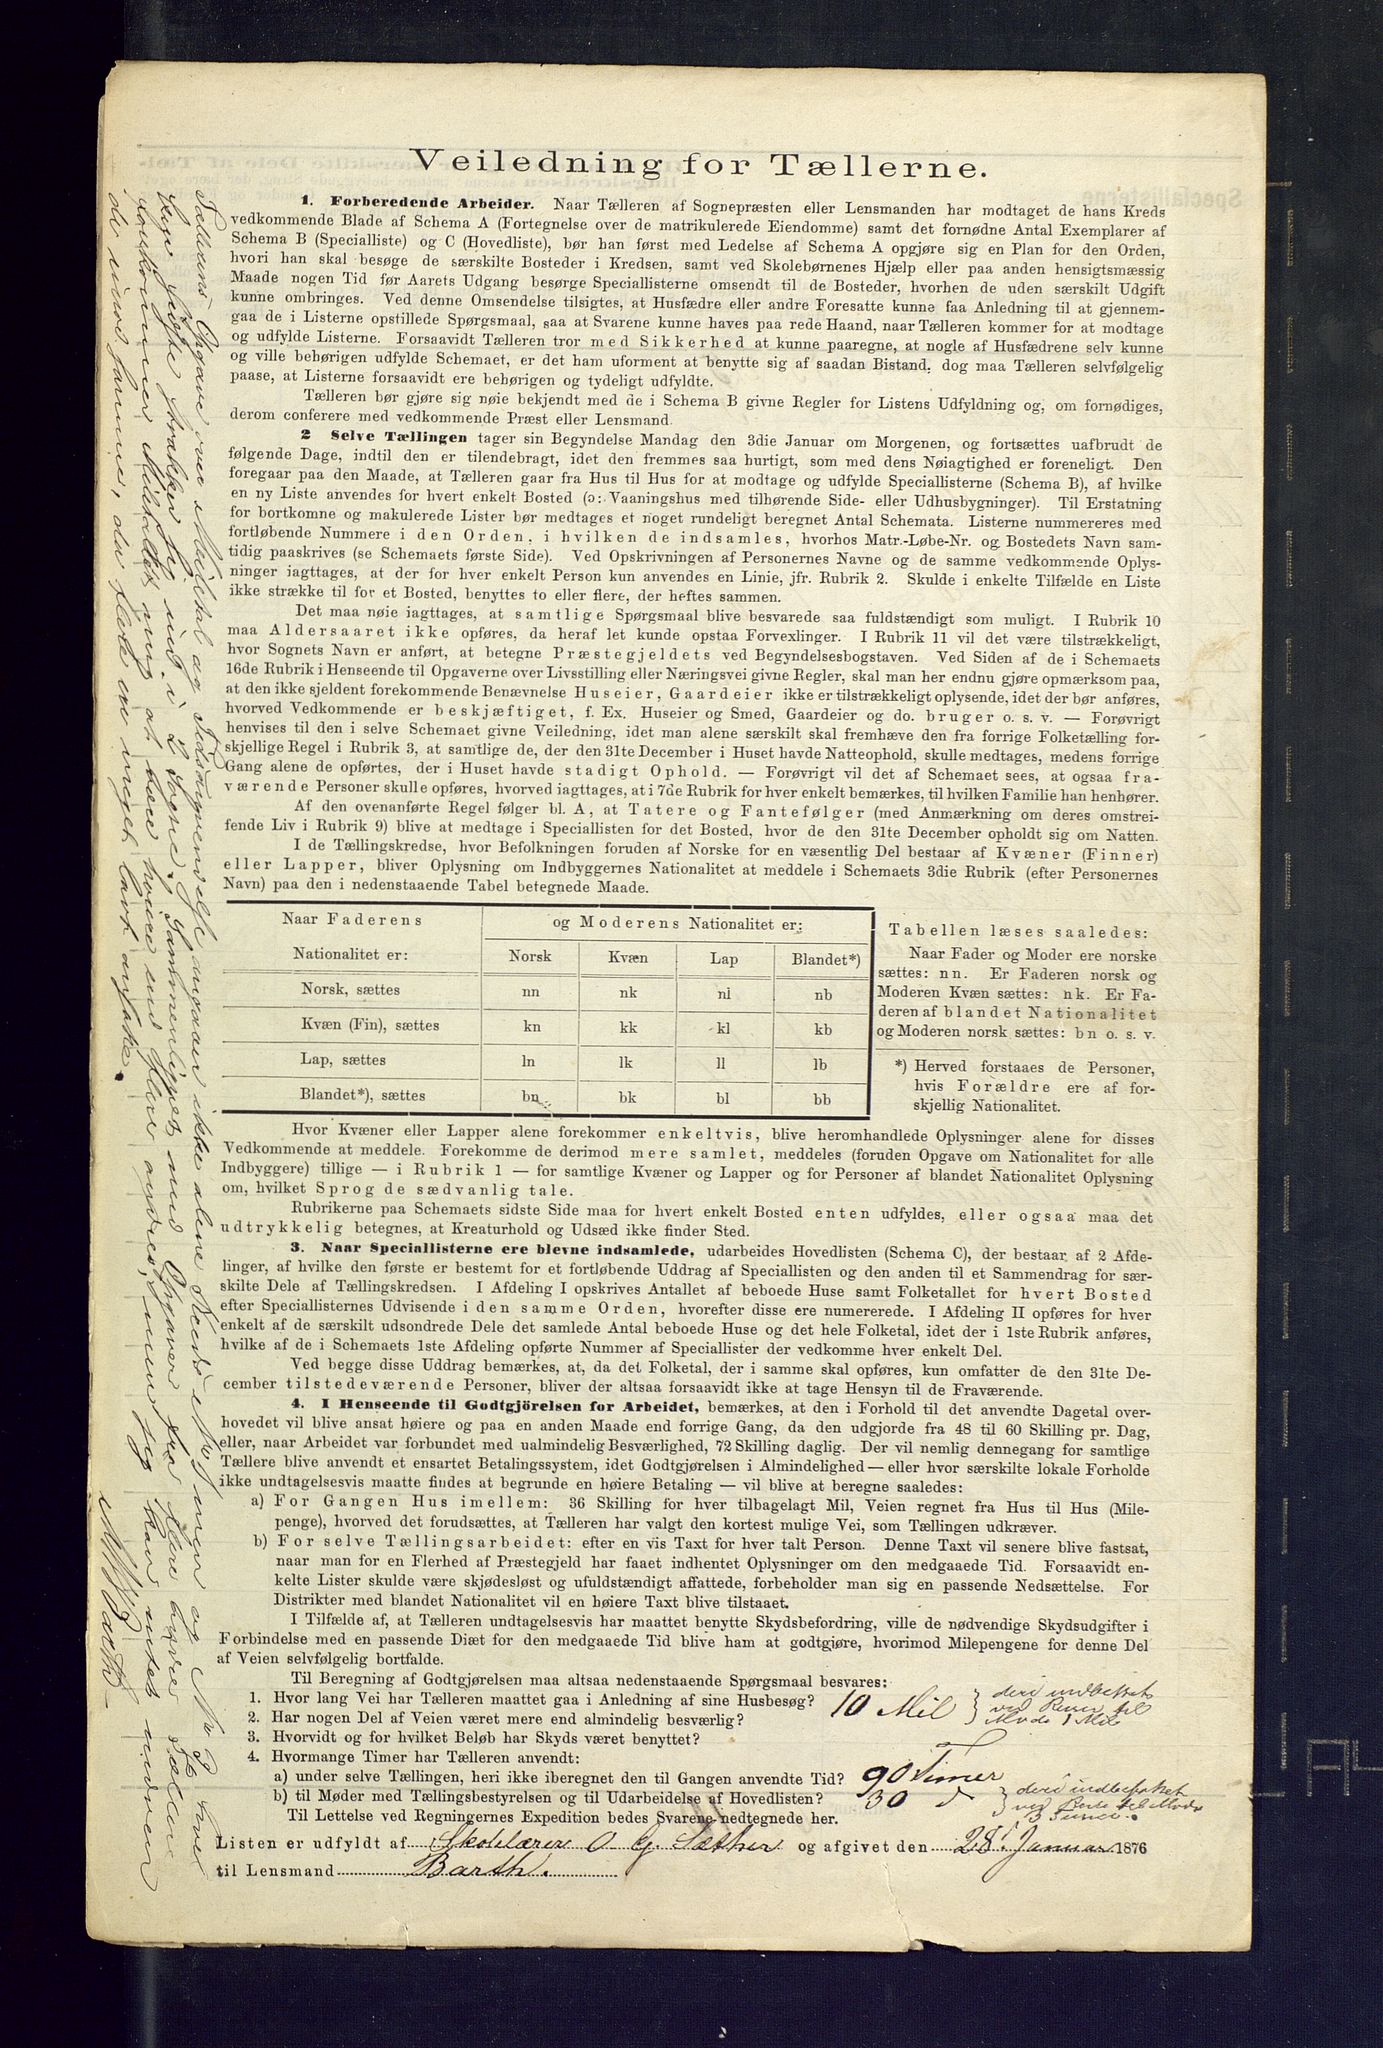 Veiledning for Tællerne.
1. Forberedende Arbeider. Naar Tælleren af Sognepræsten eller Lensmanden har modtaget de hans Kreds
vedkommende Blade af Schema A (Fortegnelse over de matrikulerede Eiendomme) samt det fornødne Antal Exemplarer af
Schema B (Specialliste) og C (Hovedliste), bør han først med Ledelse af Schema A opgjøre sig en Plan for den Orden,
hvori han skal besøge de særskilte Bosteder i Kredsen, samt ved Skolebørnenes Hjælp eller paa anden hensigtsmæssig
Maade nogen Tid før Aarets Udgang besørge Speciallisterne omsendt til de Bosteder, hvorhen de uden særskilt Udgift
kunne ombringes. Ved denne Omsendelse tilsigtes, at Husfædre eller andre Foresatte kunne faa Anledning til at gjennem-
gaa de i Listerne opstillede Spørgsmaal, saa at Svarene kunne haves paa rede Haand, naar Tælleren kommer for at modtage
og udfylde Listerne. Forsaavidt Tælleren tror med Sikkerhed at kunne paaregne, at nogle af Husfædrene selv kunne
og ville behørigen udfylde Schemaet, er det ham uforment at benytte sig af saadan Bistand, dog maa Tælleren selvfølgelig
paase, at Listerne forsaavidt ere behørigen og tydeligt udfyldte.
Tælleren bør gjøre sig nøie bekjendt med de i Schema B givne Regler for Listens Udfyldning og, om fornødiges,
derom conferere med vedkommende Præst eller Lensmand.
2 Selve Tællingen tager sin Begyndelse Mandag den 3die Januar om Morgenen, og fortsættes uafbrudt de
følgende Dage, indtil den er tilendebragt, idet den fremmes saa hurtigt, som med dens Nøiagtighed er foreneligt. Den
foregaar paa den Maade, at Tælleren gaar fra Hus til Hus for at modtage og udfylde Speciallisterne (Schema B), af hvilke
en ny Liste anvendes for hvert enkelt Bosted (ɔ: Vaaningshus med tilhørende Side- eller Udhusbygninger). Til Erstatning
for bortkomne og makulerede Lister bør medtages et noget rundeligt beregnet Antal Schemata. Listerne nummereres med
fortløbende Nummere i den Orden, i hvilken de indsamles, hvorhos Matr.-Løbe-Nr. og Bostedets Navn sam-
tidig paaskrives (se Schemaets første Side). Ved Opskrivningen af Personernes Navne og de samme vedkommende Oplys-
ninger iagttages, at der for hver enkelt Person kun anvendes en Linie, jfr. Rubrik 2. Skulde i enkelte Tilfælde en Liste
ikke strække til for et Bosted, benyttes to eller flere, der heftes sammen.
Det maa nøie iagttages, at samtlige Spørgsmaal blive besvarede saa fuldstændigt som muligt. I Rubrik 10
maa Aldersaaret ikke opføres, da heraf let kunde opstaa Forvexlinger. I Rubrik 11 vil det være tilstrækkeligt,
hvor Sognets Navn er anført, at betegne Præstegjeldets ved Begyndelsesbogstaven. Ved Siden af de i Schemaets
16de Rubrik i Henseende til Opgaverne over Livsstilling eller Næringsvei givne Regler, skal man her endnu gjøre opmærksom paa,
at den ikke sjeldent forekommende Benævnelse Huseier, Gaardeier ikke er tilstrækkeligt oplysende, idet der bør anføres,
hvorved Vedkommende er beskjæftiget, f. Ex. Huseier og Smed, Gaardeier og do. bruger o. s. v. — Forøvrigt
henvises til den i selve Schemaet givne Veiledning, idet man alene særskilt skal fremhæve den fra forrige Folketælling for-
skjellige Regel i Rubrik 3, at samtlige de, der den 31te December i Huset havde Natteophold, skulle medtages, medens forrige
Gang alene de opførtes, der i Huset havde stadigt Ophold. — Forøvrigt vil det af Schemaet sees, at ogsaa fra-
værende Personer skulle opføres, hvorved iagttages, at i 7de Rubrik for hver enkelt bemærkes, til hvilken Familie han henhører.
Af den ovenanførte Regel følger bl. A, at Tatere og Fantefølger (med Anmærkning om deres omstrei-
fende Liv i Rubrik 9) blive at medtage i Speciallisten for det Bosted, hvor de den 31te December opholdt sig om Natten.
I de Tællingskredse, hvor Befolkningen foruden af Norske for en væsentlig Del bestaar af Kvæner (Finner)
eller Lapper, bliver Oplysning om Indbyggernes Nationalitet at meddele i Schemaets 3die Rubrik (efter Personernes
Navn) paa den i nedenstaaende Tabel betegnede Maade.
Naar Faderens Nationalitet er: og Moderens Nationalitet er:
Norsk Kvæn Lap Blandet*)
Norsk, sættes nn nk nl nb
Kvæn (Fin), sættes kn kk kl kb
Lap, sættes ln lk ll lb
Blandet*), sættes bn bk bl bb
Tabellen læses saaledes:
Naar Fader og Moder ere norske
sættes: nn. Er Faderen norsk og
Moderen Kvæn sættes: nk. Er Fa-
deren af blandet Nationalitet
og Moderen norsk sættes: bn o. s. v.
*) Herved forstaaes de Personer,
hvis Forældre ere af for-
skjellig Nationalitet.
Hvor Kvæner eller Lapper alene forekommer enkeltvis, blive heromhandlede Oplysninger alene for disses
Vedkommende at meddele. Forekomme de derimod mere samlet, meddeles (foruden Opgave om Nationalitet for alle
Indbyggere) tillige — i Rubrik 1 — for samtlige Kvæner og Lapper og for Personer af blandet Nationalitet Oplysning
om, hvilket Sprog de sædvanlig tale.
Rubrikerne paa Schemaets sidste Side maa for hvert enkelt Bosted enten udfyldes, eller ogsaa maa det
udtrykkelig betegnes, at Kreaturhold og Udsæd ikke finder Sted.
3. Naar Speciallisterne ere blevne indsamlede, udarbeides Hovedlisten (Schema C), der bestaar af 2 Afde-
linger, af hvilke den første er bestemt for et fortløbende Uddrag af Speciallisten og den anden til et Sammendrag for sær-
skilte Dele af Tællingskredsen. I Afdeling I opskrives Antallet af beboede Huse samt Folketallet for hvert Bosted
efter Speciallisternes Udvisende i den samme Orden, hvorefter disse ere numererede. I Afdeling II opføres for hver
enkelt af de særskilt udsondrede Dele det samlede Antal beboede Huse og det hele Folketal, idet der i 1ste Rubrik anføres,
hvilke af de i Schemaets 1ste Afdeling opførte Nummer af Speciallister der vedkomme hver enkelt Del.
Ved begge disse Uddrag bemærkes, at, da det Folketal, der i samme skal opføres, kun omfatter de den 31te De-
cember tilstedeværende Personer, bliver der altsaa forsaavidt ikke at tage Hensyn til de Fraværende.
4. I Henseende til Godtgjörelsen for Arbeidet, bemærkes, at den i Forhold til det anvendte Dagetal over-
hovedet vil blive ansat høiere og paa en anden Maade end forrige Gang, da den udgjorde fra 48 til 60 Skilling pr. Dag,
eller, naar Arbeidet var forbundet med ualmindelig Besværlighed, 72 Skilling daglig. Der vil nemlig dennegang for samtlige
Tællere blive anvendt et ensartet Betalingssystem, idet Godtgjørelsen i Almindelighed — eller hvor særskilte lokale Forholde
ikke undtagelsesvis maatte findes at begrunde en høiere Betaling — vil blive at beregne saaledes:
a) For Gangen Hus imellem: 36 Skilling for hver tilbagelagt Mil, Veien regnet fra Hus til Hus (Mile-
penge), hvorved det forudsættes, at Tælleren har valgt den kortest mulige Vei, som Tællingen udkræver.
b) For selve Tællingsarbeidet: efter en vis Taxt for hver talt Person. Denne Taxt vil senere blive fastsat,
naar man for en Flerhed af Præstegjeld har faaet indhentet Oplysninger om den medgaaede Tid. Forsaavidt en-
kelte Lister skulde være skjødesløst og ufuldstændigt affattede, forbeholder man sig en passende Nedsættelse. For
Distrikter med blandet Nationalitet vil en høiere Taxt blive tilstaaet.
I Tilfælde af, at Tælleren undtagelsesvis har maattet benytte Skydsbefordring, ville de nødvendige Skydsudgifter i
Forbindelse med en passende Diæt for den medgaaede Tid blive ham at godtgjøre, hvorimod Milepengene for denne Del
af Veien selvfølgelig bortfalde.
Til Beregning af Godtgjørelsen maa altsaa nedenstaaende Spørgsmaal besvares:
1. Hvor lang Vei har Tælleren maattet gaa i Anledning af sine Husbesøg? 10 Mil } deri indbefattet
ved Reise til
Møde 1 Mil
2. Har nogen Del af Veien været mere end almindelig besværlig?
3. Hvorvidt og for hvilket Beløb har Skyds været benyttet?
4. Hvormange Timer har Tælleren anvendt:
a) under selve Tællingen, heri ikke iberegnet den til Gangen anvendte Tid? 90 Timer
b) til Møder med Tællingsbestyrelsen og til Udarbeidelse af Hovedlisten? 30 d } deri indbefattet
ved Reise til Møde
3 Timer
Til Lettelse ved Regningernes Expedition bedes Svarene nedtegnede her.
Listen er udfyldt af Skolelærer O G Sæther og afgivet den 28. Januar 1876
til Lensmand Barth.
Tællerens Opgave over Miletal og Tidsanvendelse angaaer ikke alene Kreds No 1 men og No 2
da flere have været lavt ansatte.
Barth